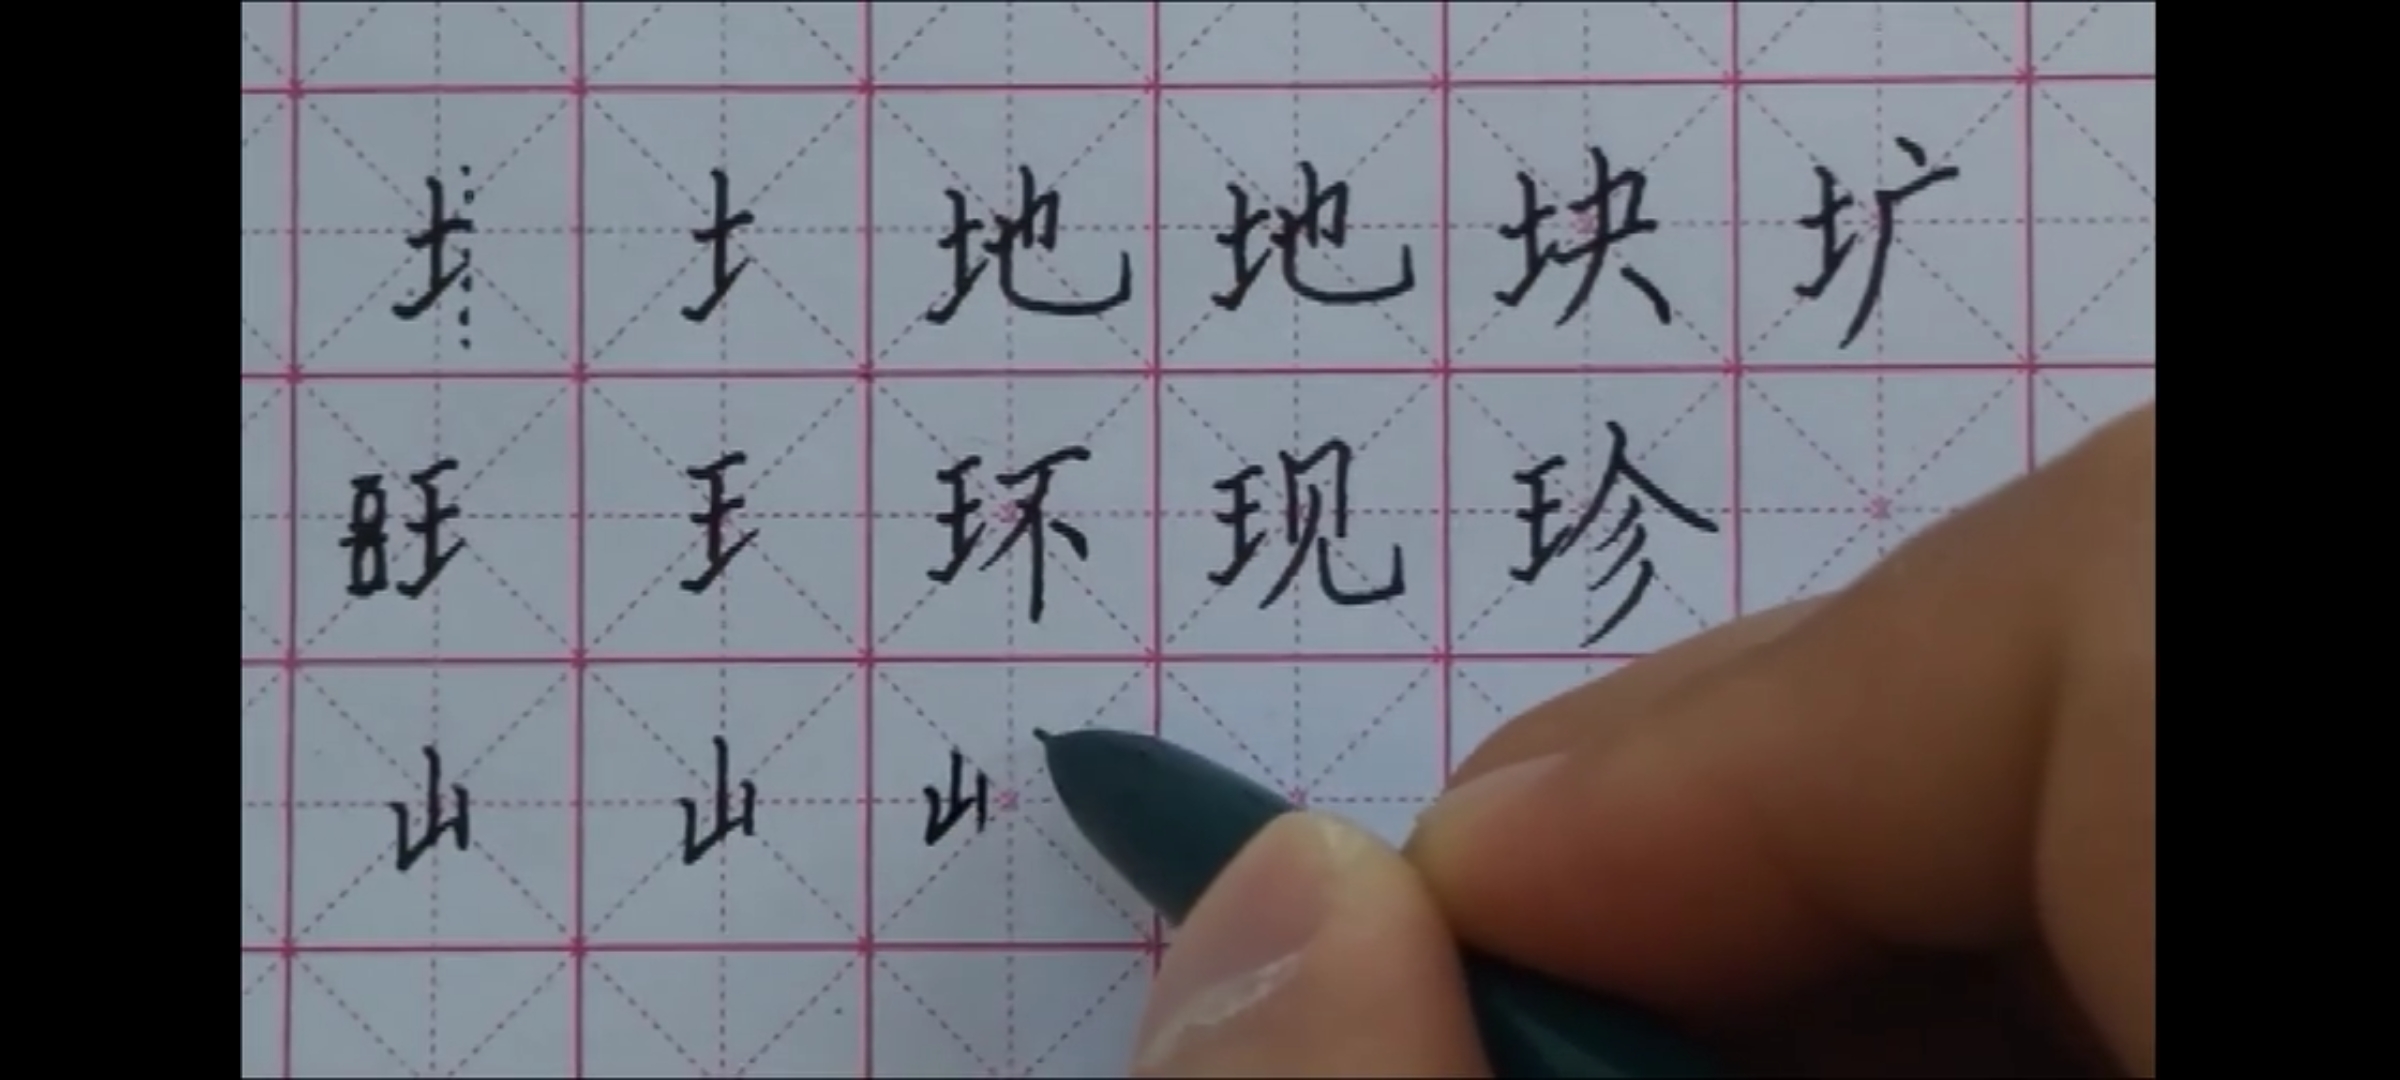 土 土 地 地 块 圹
王 王 环 现 珍
山 山 山